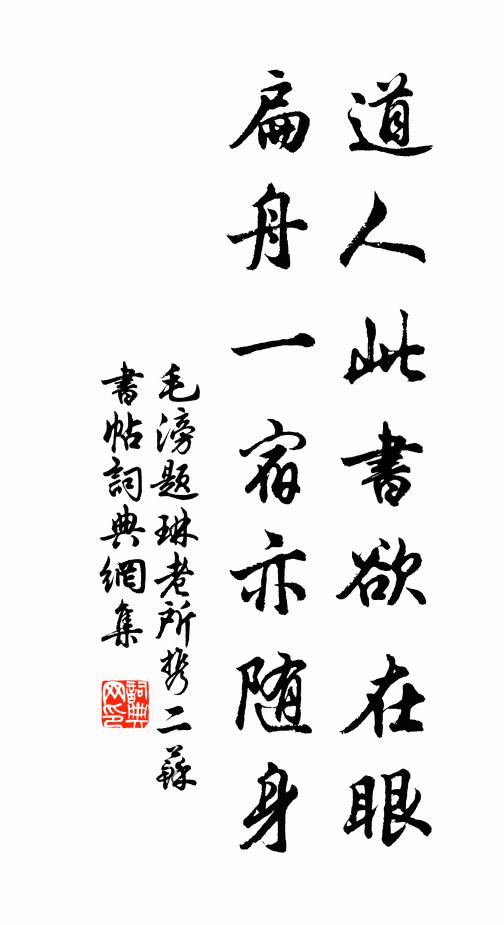 道人此書欲在眼
扁舟一宿亦随身
毛滂题琳老所携二蘇
書帖詞典網集
詞典
网印